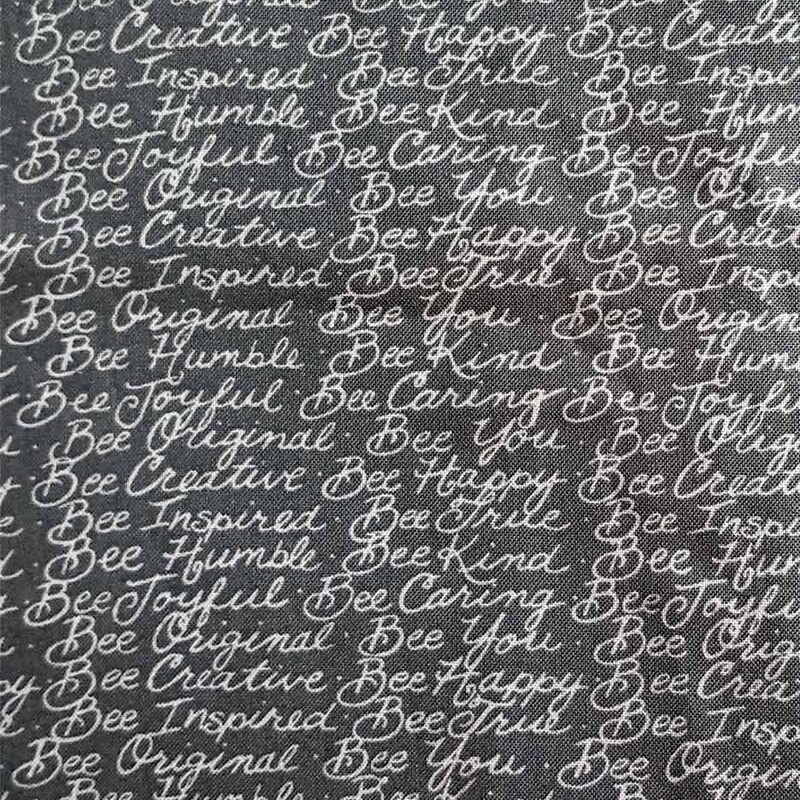 Bee Creative · Bee Happy · Bee Creati
Bee Inspired · Bee True · Bee Inspi
Bee Humble · Bee Kind · Bee Hum
Bee Joyful · Bee Caring · Bee Joyfu
Bee Original · Bee You · Bee Origi
y · Bee Creative · Bee Happy · Bee Creat
Bee Inspired · Bee True · Bee Insp
Bee Original · Bee You · Bee Origin
Bee Humble · Bee Kind · Bee Hum
Bee Joyful · Bee Caring · Bee Joyfu
Bee Original · Bee You · Bee Orig
Bee Creative · Bee Happy · Bee Creat
e · Bee Inspired · Bee True · Bee Inspi
Bee Humble · Bee Kind · Bee Hum
Bee Joyful · Bee Caring · Bee Joyfu
Bee Original · Bee You · Bee Orig
py · Bee Creative · Bee Happy · Bee Crea
Bee Inspired · Bee True · Bee Insp
Bee Original · Bee You · Bee Origin